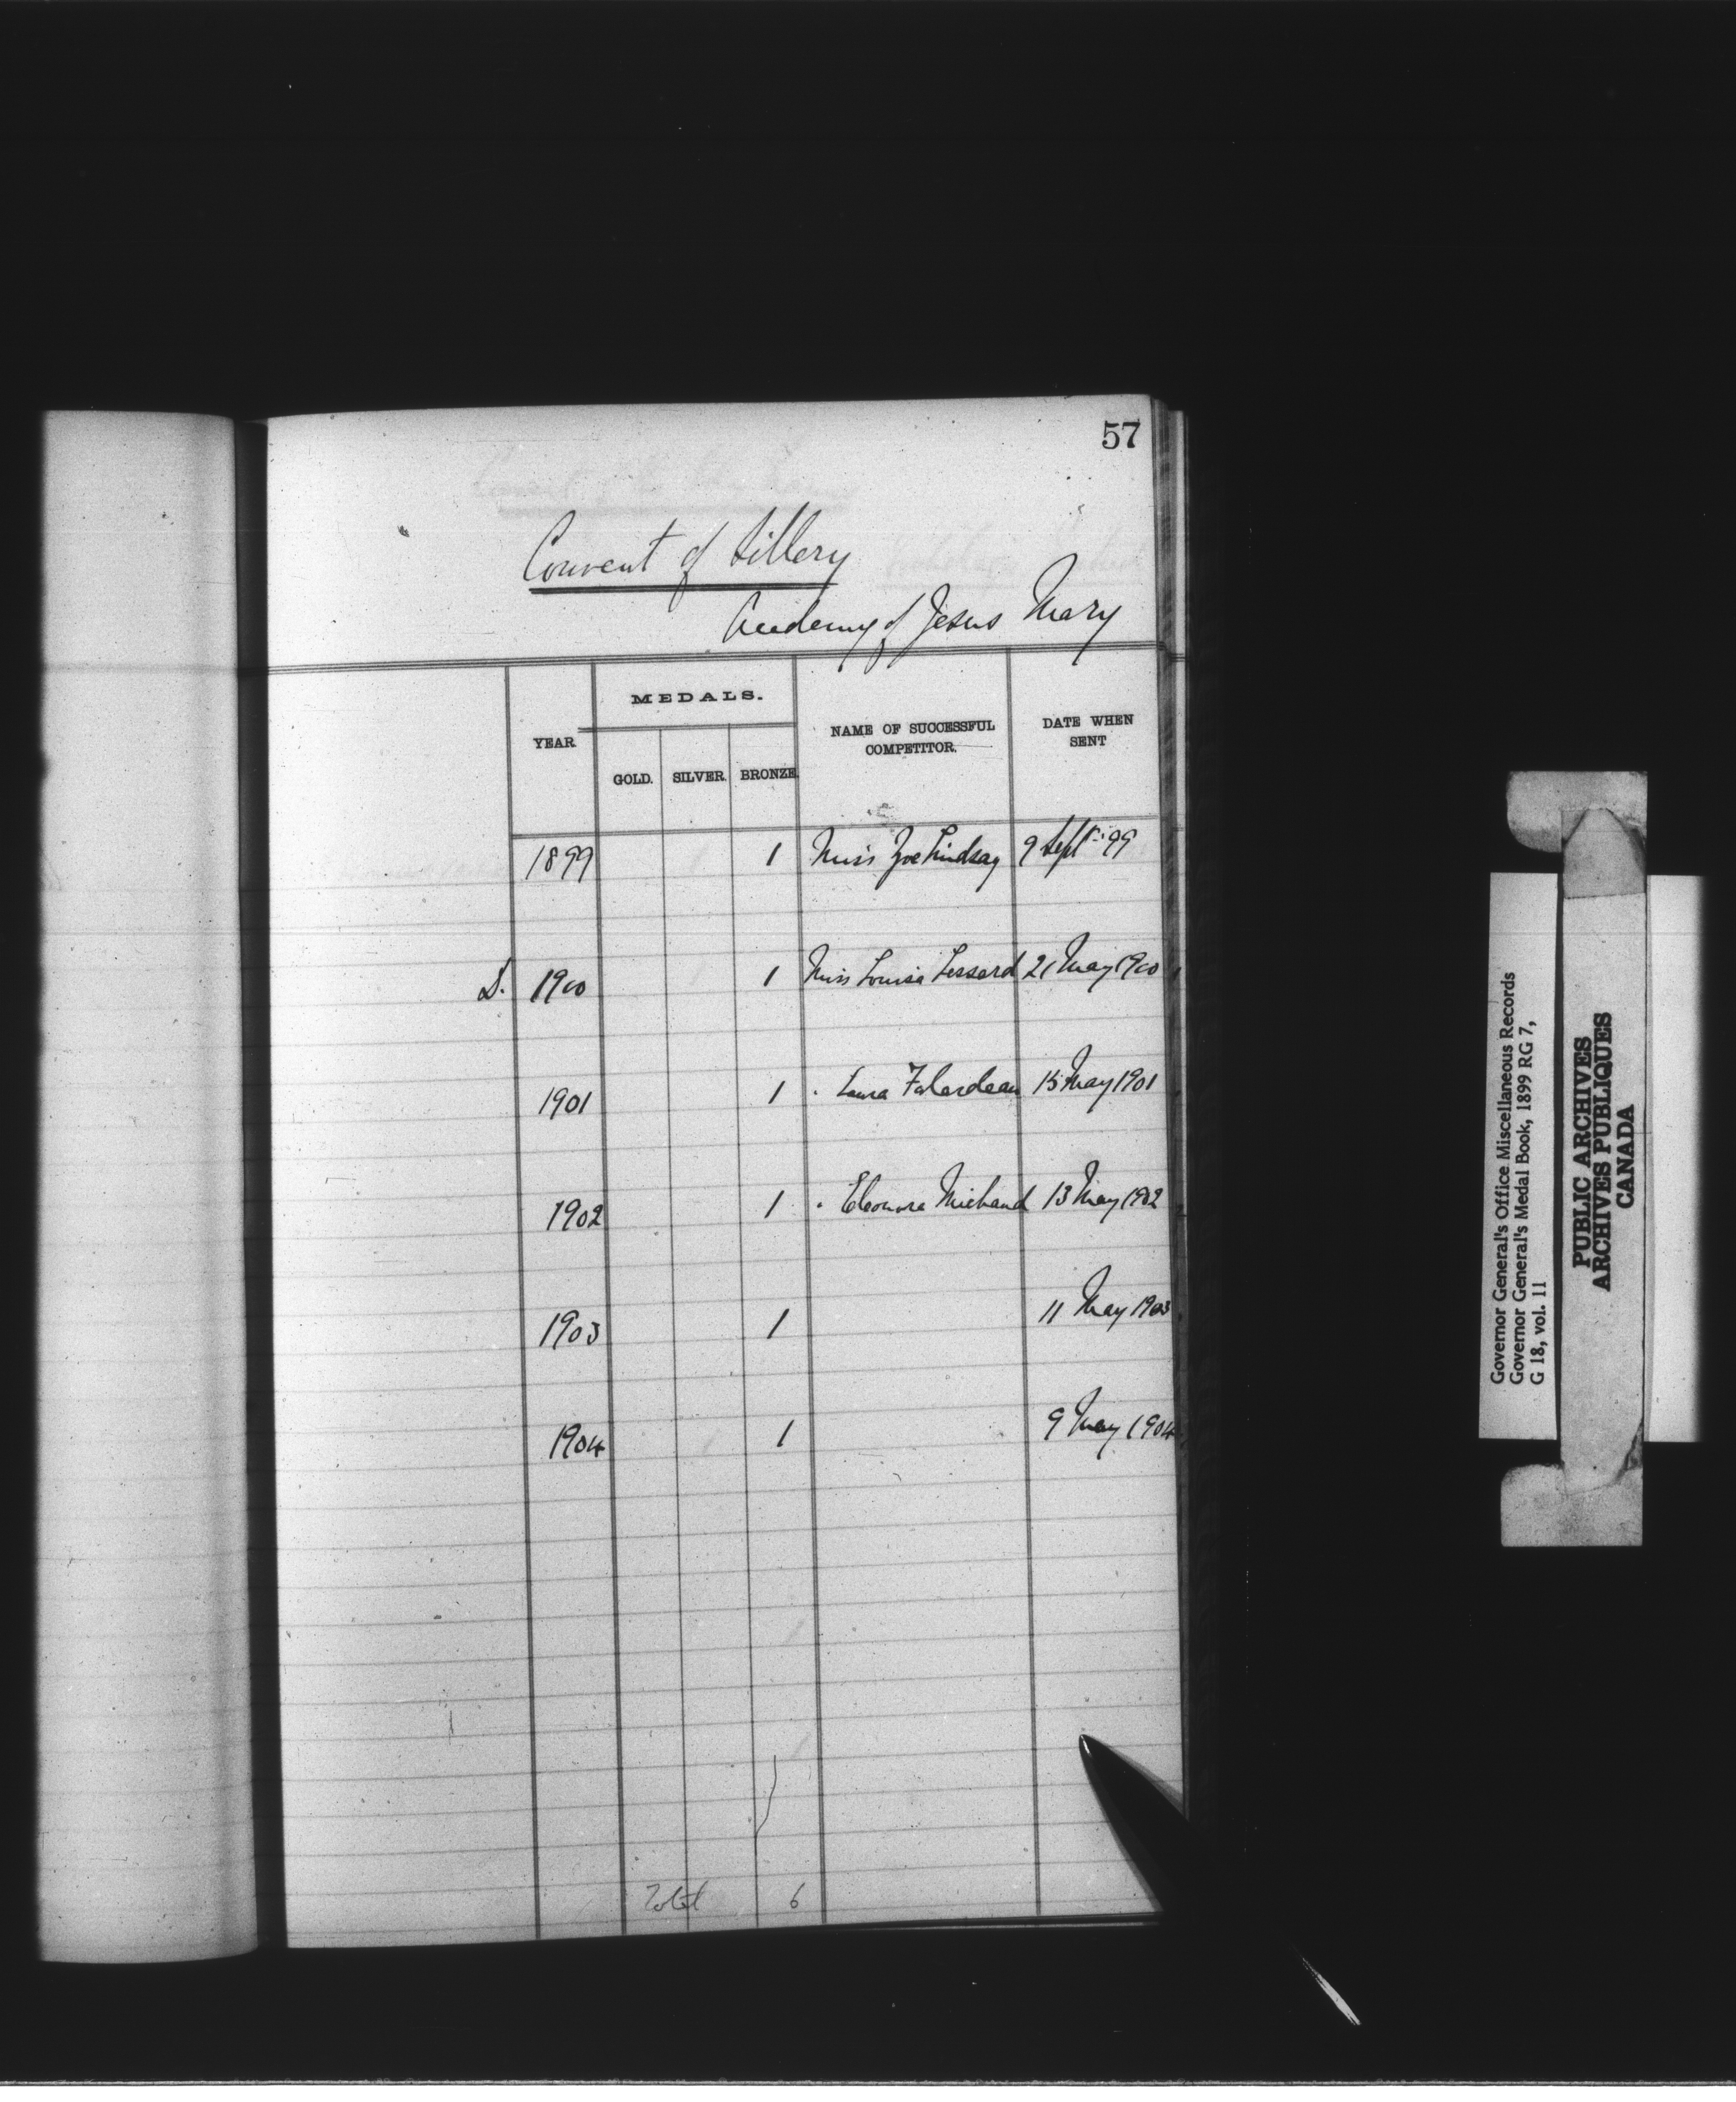 57
Convent of Sillery
Academy of Jesus Mary
YEAR. MEDALS. GOLD. SILVER. BRONZE. NAME OF SUCCESSFUL COMPETITOR. DATE WHEN SENT
1899 1 Miss Zoe Lindsay 9 Sept. '99
D. 1900 1 Miss Louisa Lessard 21 May 1900
1901 1 " Laura Falardeau 15 May 1901
1902 1 " Eleonora Michaud 13 May 1902
1903 1 11 May 1903
1904 1 9 May 1904
Total 6
Governor General's Office Miscellaneous Records
Governor General's Medal Book, 1899 RG 7,
G 18, vol. 11
PUBLIC ARCHIVES
ARCHIVES PUBLIQUES
CANADA